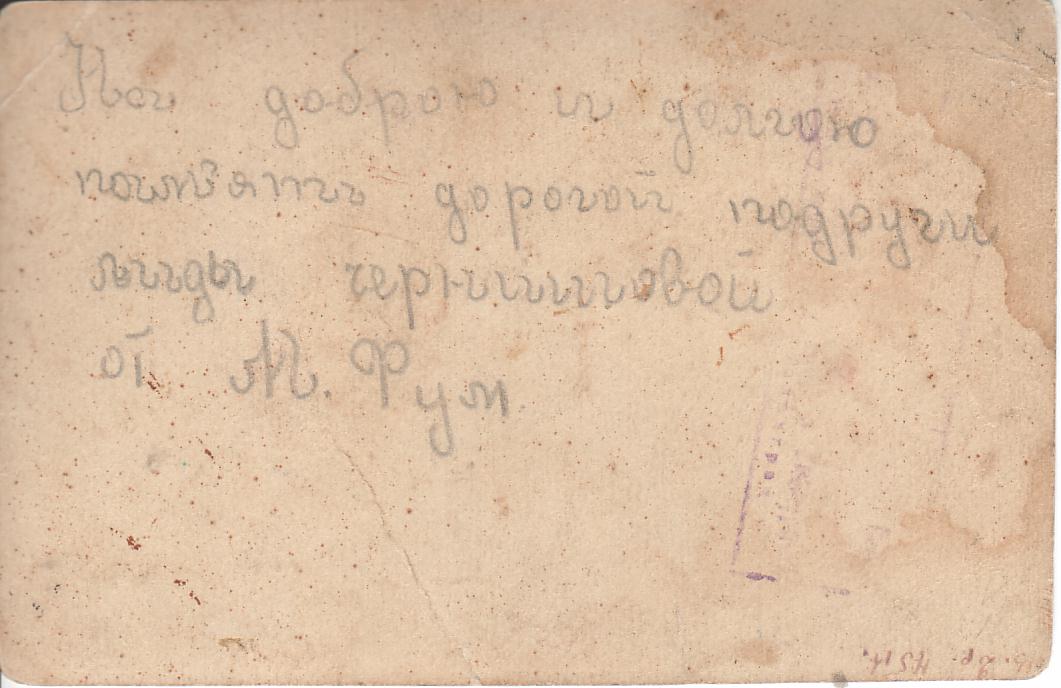 На доброю и долгою
пам'ять дорогой подруги
лиды чернишовой
от М. Рум.